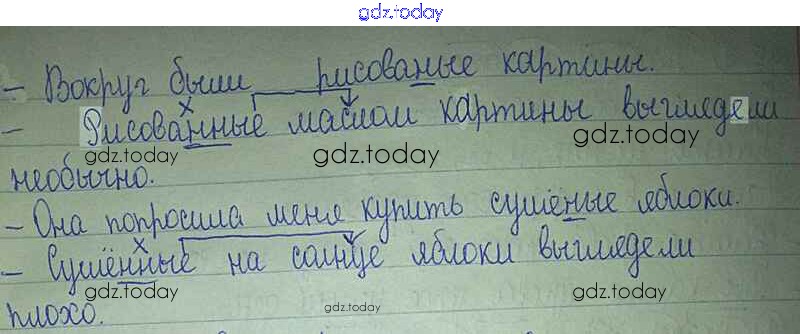 gdz.today
- Вокруг были рисованые картины.
х
- Рисованные маслом картины выглядели
gdz.today gdz.today gdz.today
необычно.
- Она попросила меня купить сушёные яблоки.
х
- Сушённые на солнце яблоки выглядели
gdz.today gdz.today gdz.today
плохо.